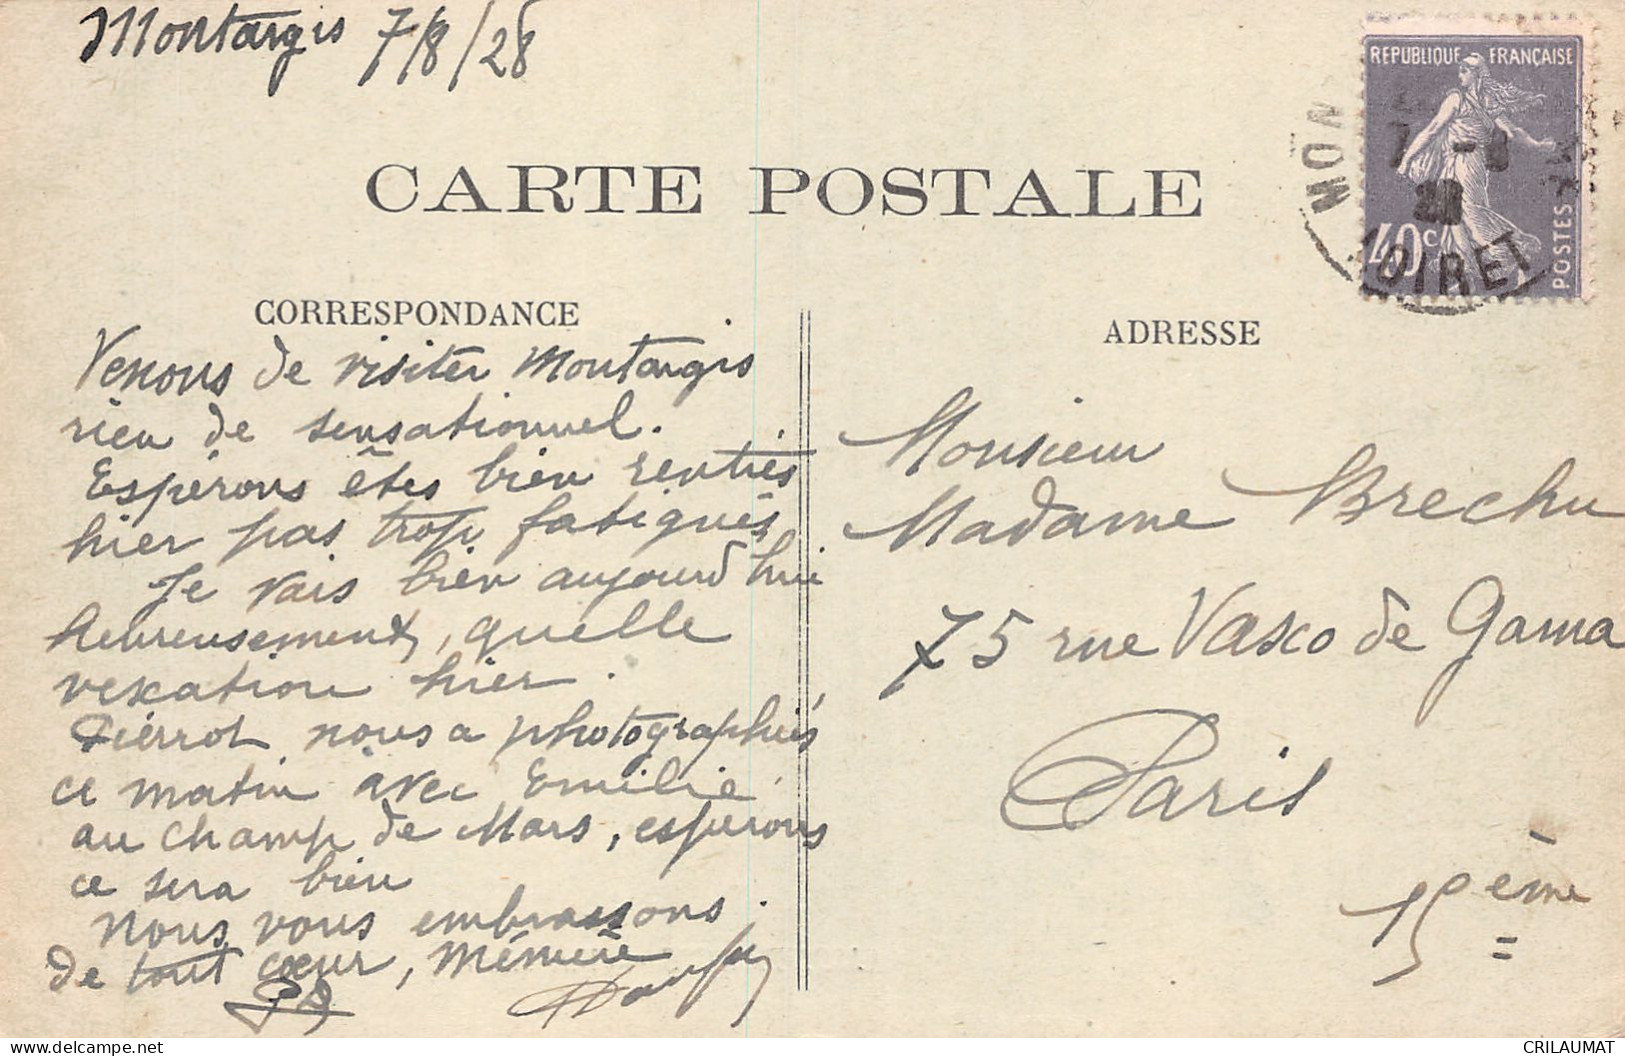 Montargis 7/8/28
REPUBLIQUE FRANÇAISE
40c
POSTES
MON
LOIRET
7 -8
28
CARTE POSTALE
CORRESPONDANCE
Venons de visiter Montargis
rien de sensationnel.
Espérons êtes bien rentrés
hier pas trop fatigués
Je vais bien aujourd'hui
heureusement, quelle
vexation hier.
Pierrot nous a photographiés
ce matin avec Emilie
au champ de Mars, espérons
ce sera bien
Nous vous embrassons.
de tout cœur, Mémère
ADRESSE
Monsieur
Madame Brechu
75 rue Vasco de Gama
Paris
15ème
CRILAUMAT